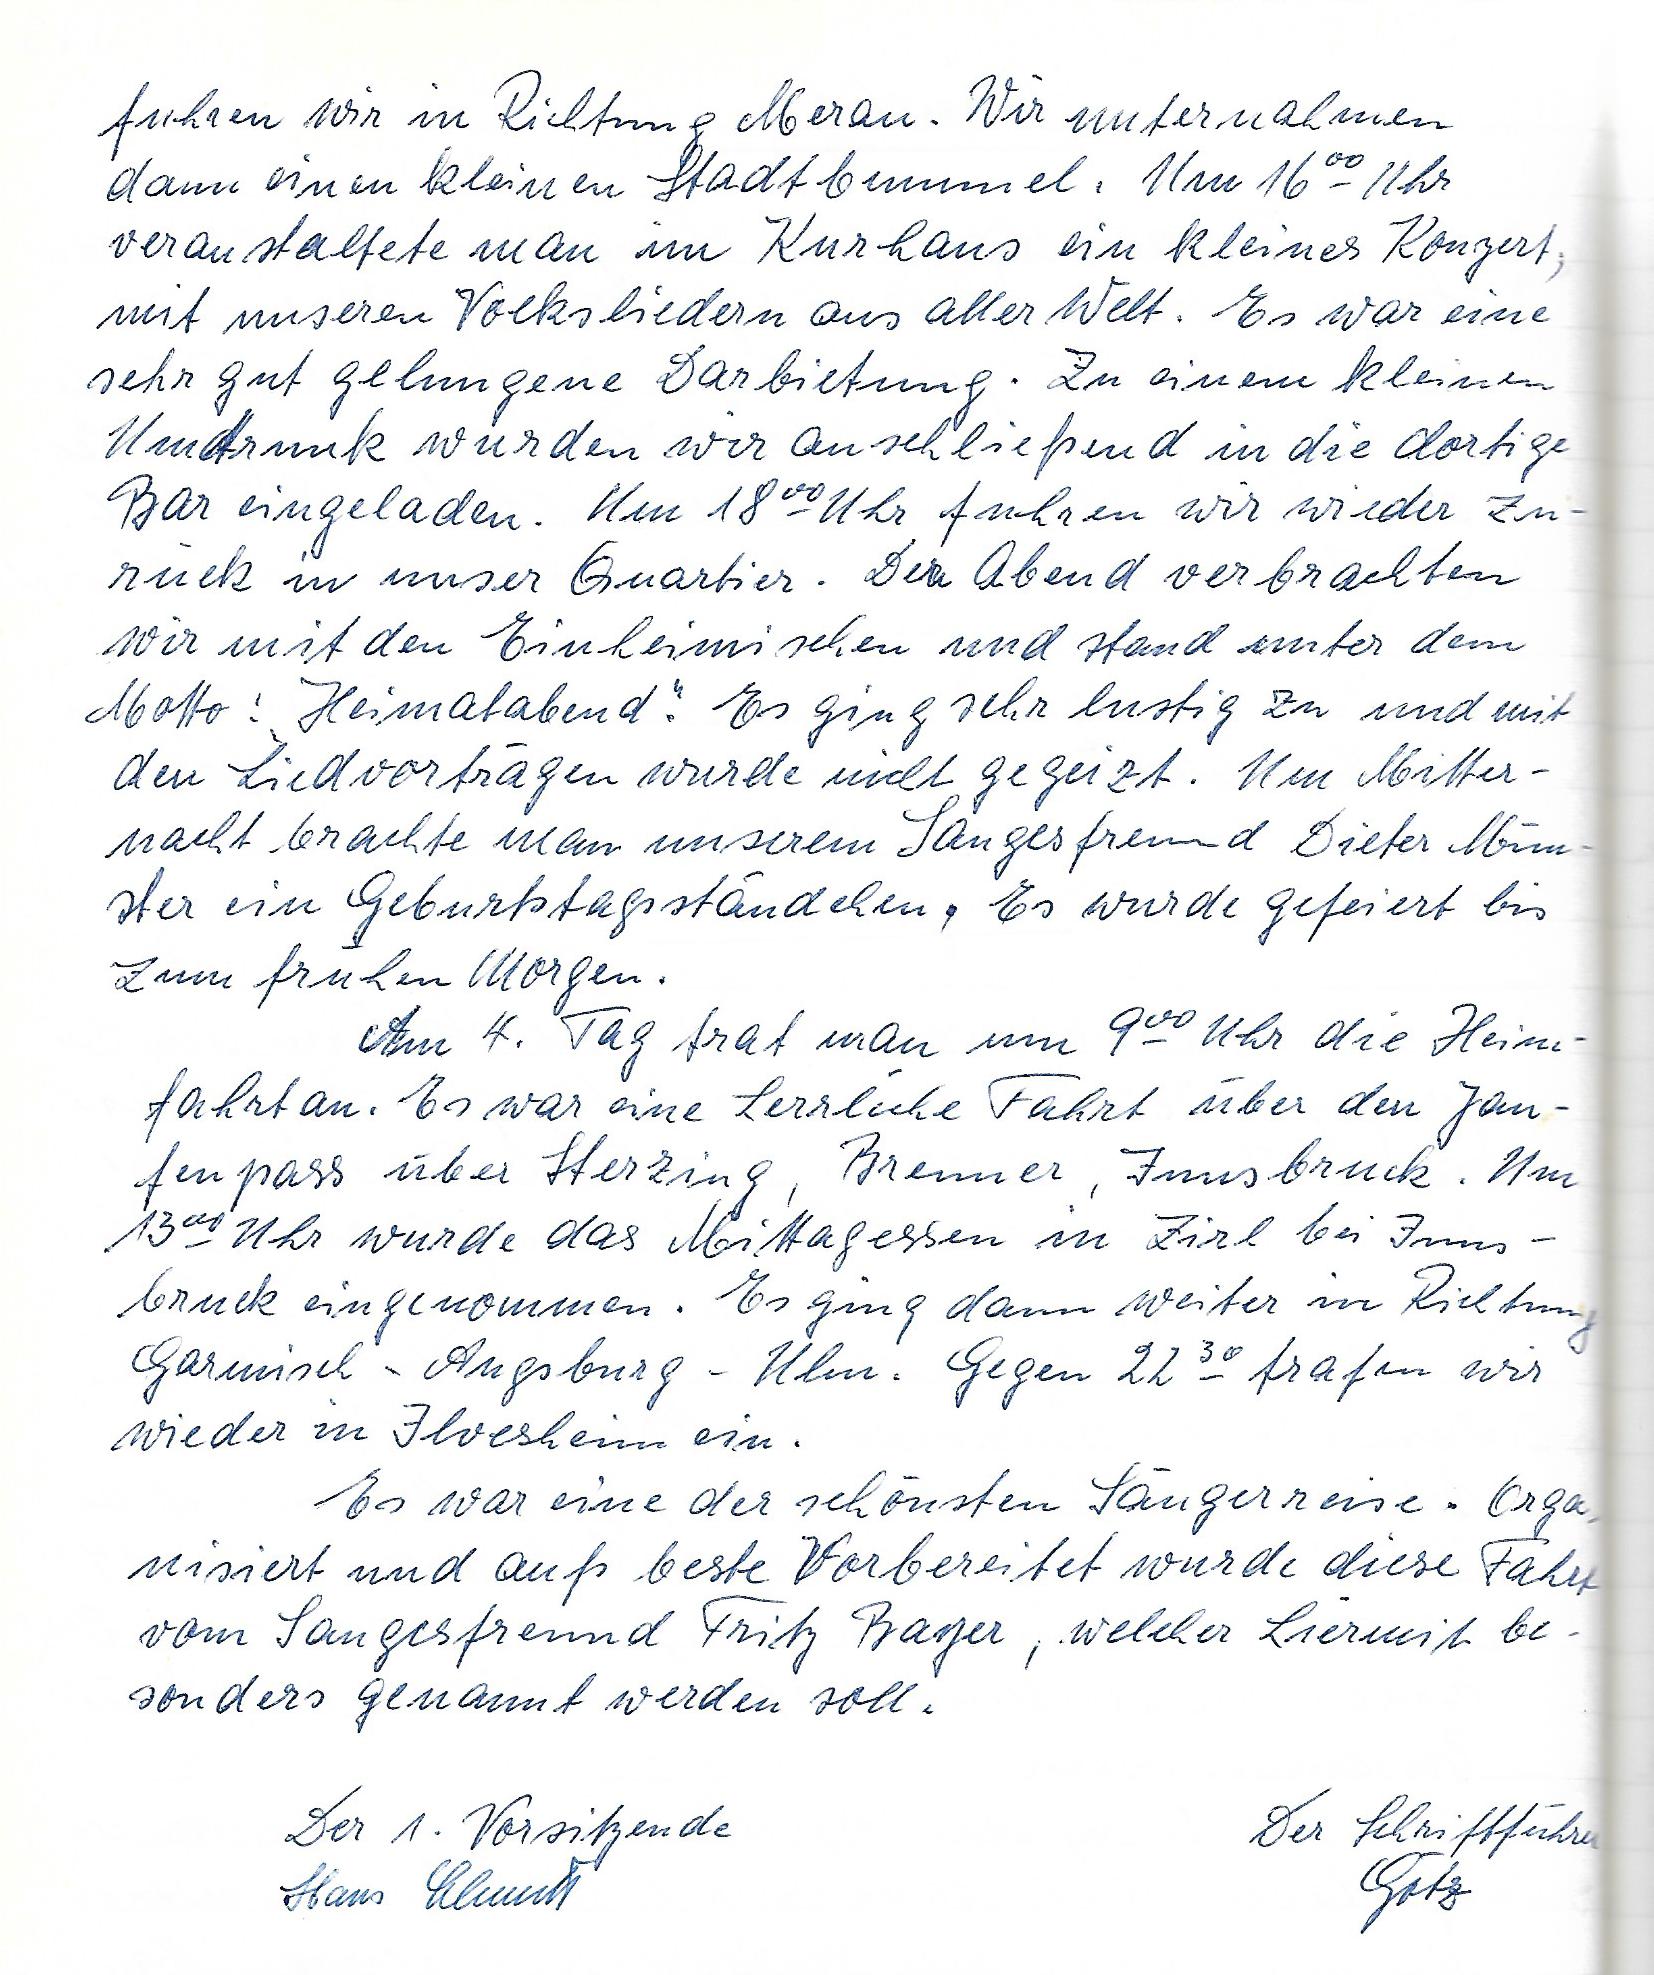 fuhren wir in Richtung Meran. Wir unternahmen
dann einen kleinen Stadtbummel. Um 16⁰⁰ Uhr
veranstaltete man im Kurhaus ein kleines Konzert,
mit unseren Volksliedern aus aller Welt. Es war eine
sehr gut gelungene Darbietung. Zu einem kleinen
Umdrunk wurden wir anschließend in die dortige
Bar eingeladen. Um 18⁰⁰ Uhr fuhren wir wieder zu-
rück in unser Quartier. Den Abend verbrachten
wir mit den Einheimischen und stand unter dem
Motto: „Heimatabend". Es ging sehr lustig zu und mit
den Liedvorträgen wurde nicht gegeizt. Um Mitter-
nacht brachte man unserem Sangesfreund Dieter Mün-
ster ein Geburtstagsständchen. Es wurde gefeiert bis
zum frühen Morgen.
Am 4. Tag trat man um 9⁰⁰ Uhr die Heim-
fahrt an. Es war eine herrliche Fahrt über den Jau-
fenpass über Sterzing, Brenner, Innsbruck. Um
13⁰⁰ Uhr wurde das Mittagessen in Zirl bei Inns-
bruck eingenommen. Es ging dann weiter in Richtung
Garmisch - Augsburg - Ulm. Gegen 22³⁰ trafen wir
wieder in Ilvesheim ein.
Es war eine der schönsten Sängerreise. Orga-
nisiert und aufs beste Vorbereitet wurde diese Fahrt
vom Sangesfreund Fritz Bayer, welcher hiermit be-
sonders genannt werden soll.
Der 1. Vorsitzende Der Schriftführer
Hans Götz